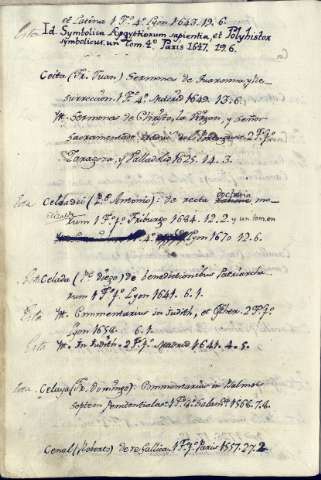 et Latina 1 Fº. 4º. Lyon 1643. 19. 6.
Esta Id. Symbolica Ægyptiorum sapientia, et Polyhistor
symbolicus, un tom. 4º Paris 1647. 19. 6.
Ceita (Fr. Juan) Sermones de Quaresma, y Re-
surreccion, 1 Fº. 4º. Madrid 1649. 13. 6.
It. Sermones de Christo, la Virgen, y Señor
Sacramentado 2 Fº. 4º.
Zaragoza, y Valladolid 1625. 14. 3.
Esta Celladei (Dº. Antonio): de recta doctrina mo-
rum 1 Fº. fº. Friburgo 1684. 12. 2. y un tom. en
4º. Lyon 1670. 12. 6.
Esta Celada (Pe. Diego) de benedictionibus Patriarcha-
rum 1 Fº. fº. Lyon 1641. 6. 1.
Esta It. Commentarius in Judith, et Esther. 2 Fº. fº.
Lyon 1658. 6. 1.
Esta It. In Judith. 2 Fº. fº. Madrid 1641. 4. 5.
Esta Celaya (Fr. Domingo): Commentarius in Psalmos
septem penitentiales. 1 Fº. 4º. Salamca. 1568. 7. 4.
Cenal (Roberto) de re Gallica. 1 Fº. fº. Paris 1557. 27. 2.